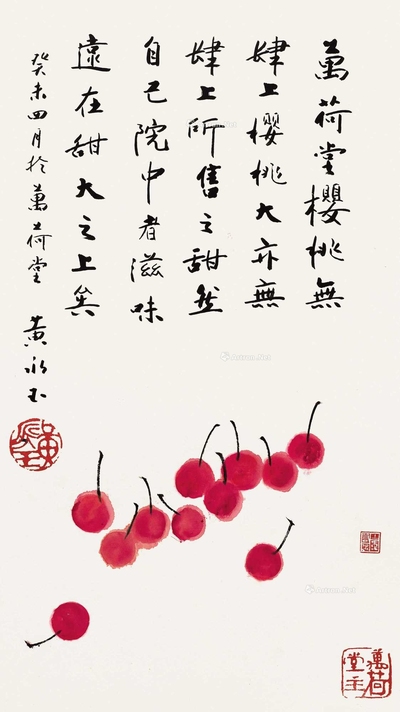 萬荷堂櫻桃無
肆上櫻桃大亦無
肆上所售之甜然
自己院中者滋味
遠在甜大之上矣
癸未四月於萬荷堂
黃永玉
黃永玉
萬荷堂主